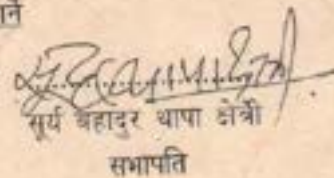 र्ने
सूर्य बहादुर थापा क्षेत्री
सभापति